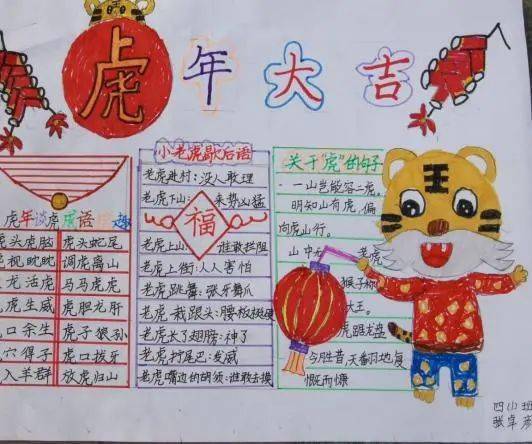 虎年大吉
虎年谈虎成语
头虎脑 虎头蛇尾
视眈眈 调虎离山
龙活虎 马马虎虎
虎生威 虎胆龙肝
口余生 虎子狼孙
穴得子 虎口拔牙
入羊群 放虎归山
小老虎歇后语
老虎进村:没人敢理
老虎下山:来势凶猛
老虎上山:谁敢拦阻
老虎上街:人人害怕
老虎跳舞:张牙舞爪
老虎栽跟头:
老虎长了翅膀:神了
老虎拧尾巴:发威
老虎嘴边的胡须:谁敢去摸
福
关于"虎"的句子
一山岂能容二虎。
明知山有虎,偏
向虎山行。
山中无老虎
猴子称
大王。
虎踞龙盘
今胜昔天翻地复
慨而慷
王
四(1)班
张卓